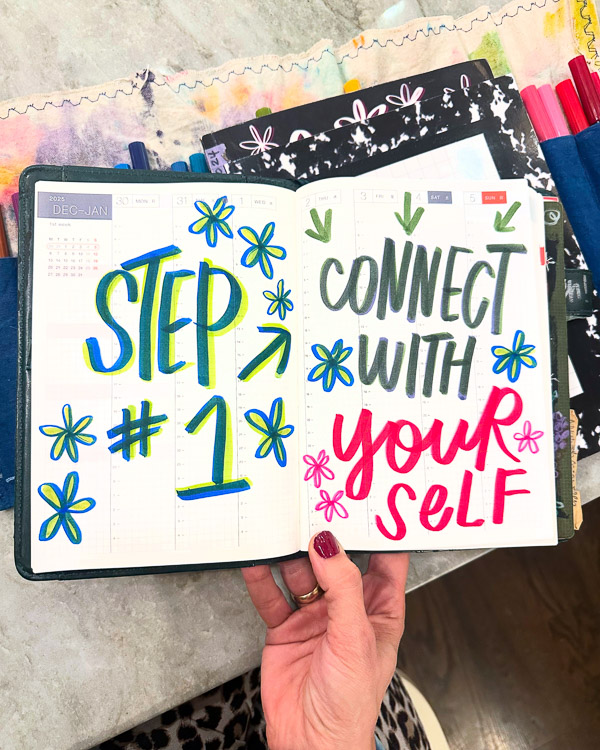 2025
DEC–JAN
1st week
30 MON
31
1 WED
STEP
#1
2
3 FRI
4 SAT
5 SUN
CONNECT
WITH
youR
SeLF